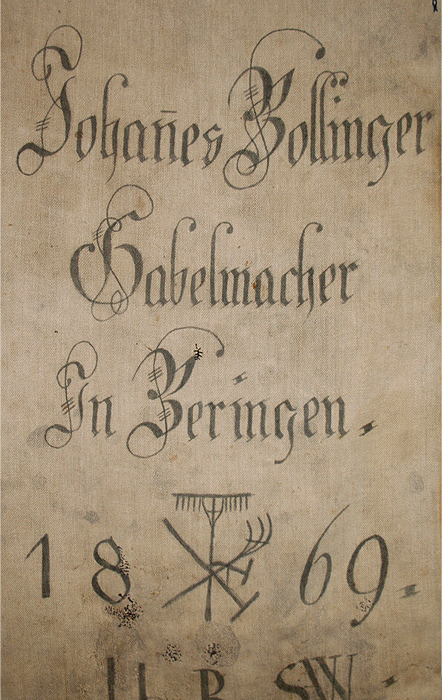 Johan̅es Bollinger
Gabelmacher
In Beringen.
18 69.